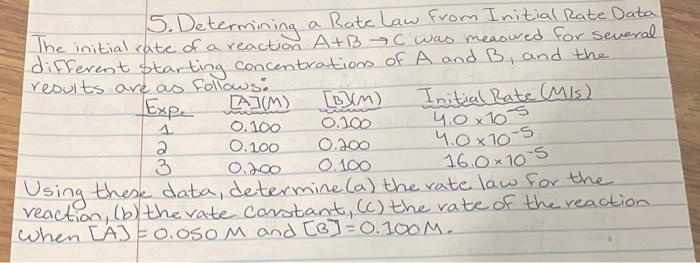 5. Determining a Rate Law from Initial Rate Data
The initial rate of a reaction A+B → C was measured for several
different starting concentrations of A and B, and the
results are as follows:
Exp. [A](M) [B](M) Initial Rate (M/s)
1 0.100 0.100 4.0 x 10⁻⁵
2 0.100 0.200 4.0 x 10⁻⁵
3 0.200 0.100 16.0 x 10⁻⁵
Using these data, determine (a) the rate law for the
reaction, (b) the rate constant, (c) the rate of the reaction
when [A] = 0.050 M and [B] = 0.100 M.